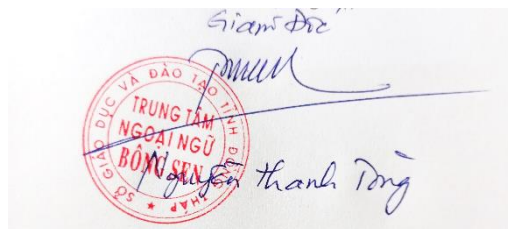 Giám Đốc
SỞ GIÁO DỤC VÀ ĐÀO TẠO TỈNH ĐỒNG THÁP
TRUNG TÂM
NGOẠI NGỮ
BÔNG SEN
Nguyễn Thanh Tòng